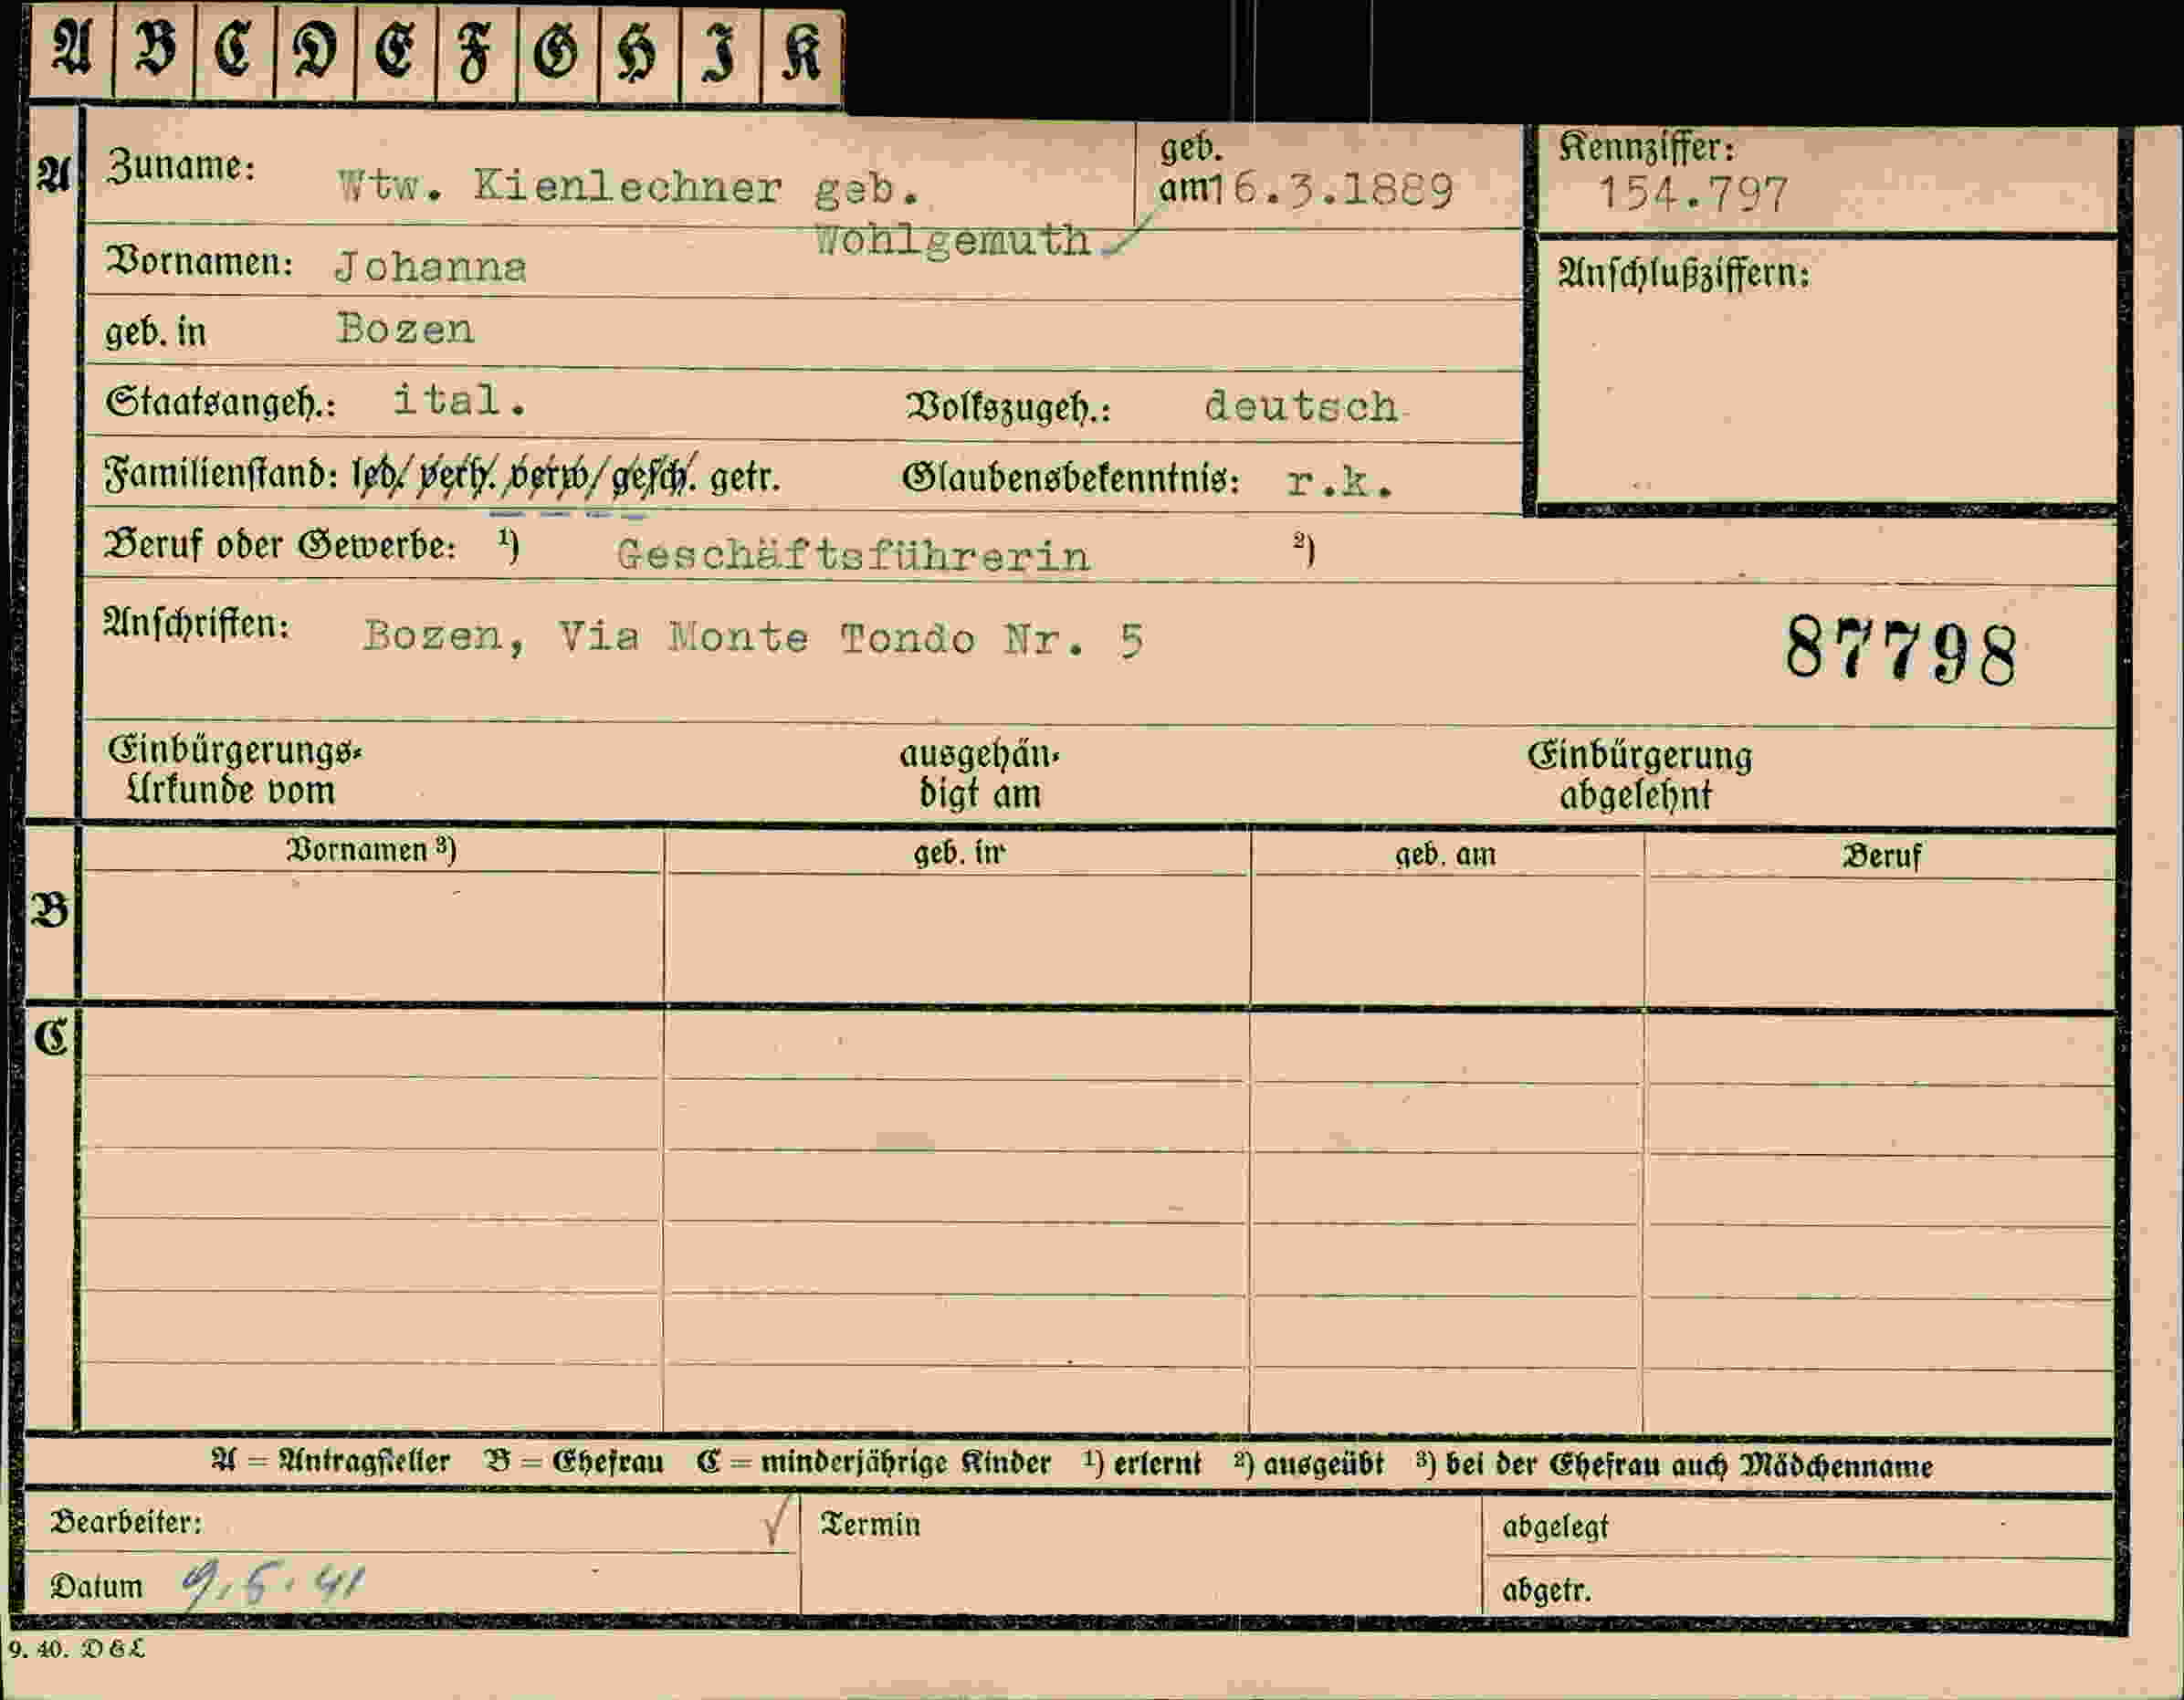 A B C D E F G H I K
A Zuname: Wtw. Kienlechner geb. Wohlgemuth geb. am 16.3.1889 Kennziffer: 154.797
Vornamen: Johanna Anschlußziffern:
geb. in Bozen
Staatsangeh.: ital. Volkszugeh.: deutsch
Familienstand: led. verh. verw. gesch. getr. Glaubensbekenntnis: r.k.
Beruf oder Gewerbe: ¹) Geschäftsführerin ²)
Anschriften: Bozen, Via Monte Tondo Nr. 5 87798
Einbürgerungs-
Urkunde vom
ausgehän-
digt am
Einbürgerung
abgelehnt
Vornamen ³) geb. in geb. am Beruf
B
C
A = Antragsteller B = Ehefrau C = minderjährige Kinder ¹) erlernt ²) ausgeübt ³) bei der Ehefrau auch Mädchenname
Bearbeiter: Termin abgelegt
Datum 9.5.41 abgetr.
9. 40. D&L